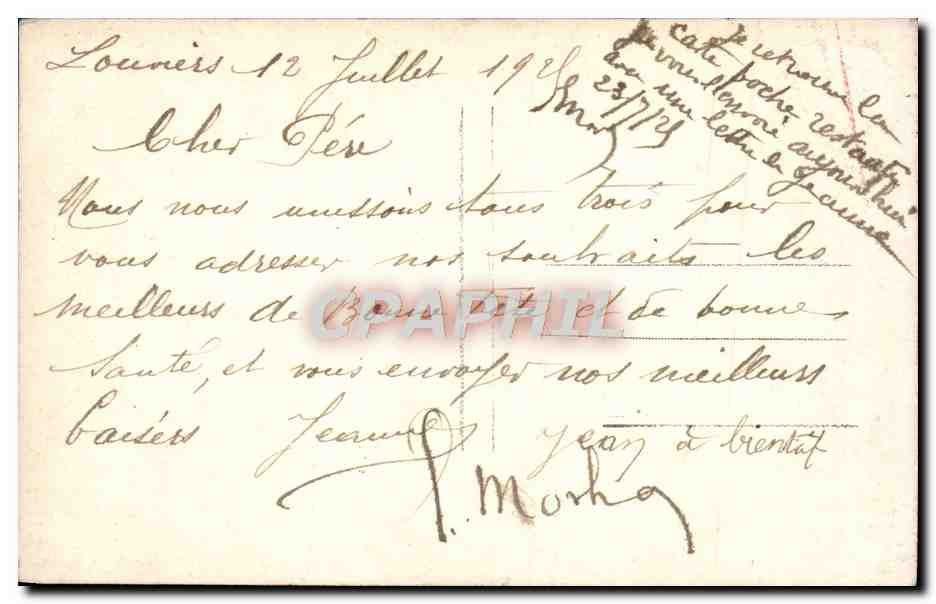 Louviers 12 Juillet 1925
Cher Pére
Nous nous unissons tous trois pour
vous adresser nos souhaits les
meilleurs de Bonne fête et de bonne
Santé, et vous envoyer nos meilleurs
baisers Jeanne Jean à bientôt
Je retrouve la
carte poche restante
je vous l'envoie aujourd'hui
avec une lettre de Jeanne
23/7/25
CPAPHIL